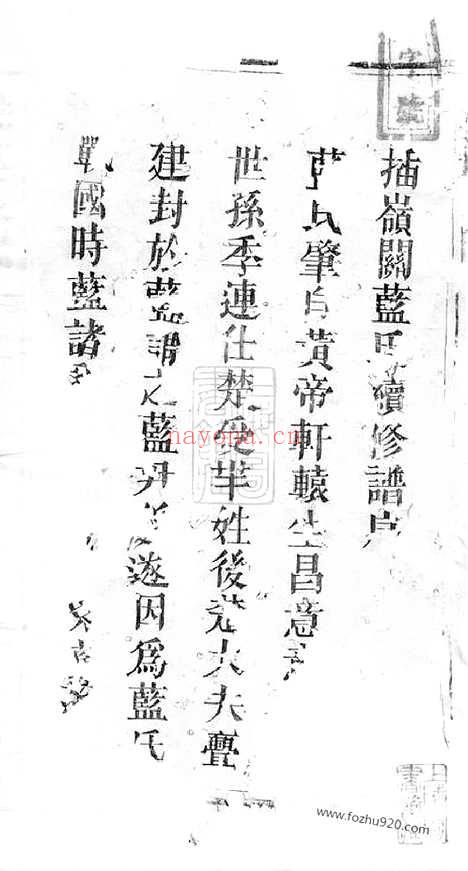 插嶺關藍氏續修譜
氏肇自黃帝軒轅生昌意
世孫季連仕楚從芈姓後楚大夫亹
建封於藍謂之藍尹 遂因爲藍氏
戰國時藍諸
字號
hayona.cn
www.fozhu920.com